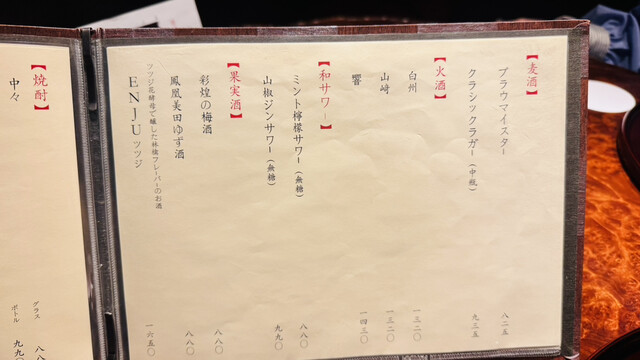 【麦酒】
ブラウマイスター 八二五
クラシックラガー（中瓶） 九三五
【火酒】
白州 一三二〇
山崎 一三二〇
響 一四三〇
【和サワー】
ミント檸檬サワー（無糖） 八八〇
山椒ジンサワー（無糖） 九九〇
【果実酒】
彩煌の梅酒 八八〇
鳳凰美田ゆず酒 八八〇
ENJUツツジ 一六五〇
ツツジ花酵母で醸した林檎フレーバーのお酒
【焼酎】
中々
グラス 八八
ボトル 九九〇